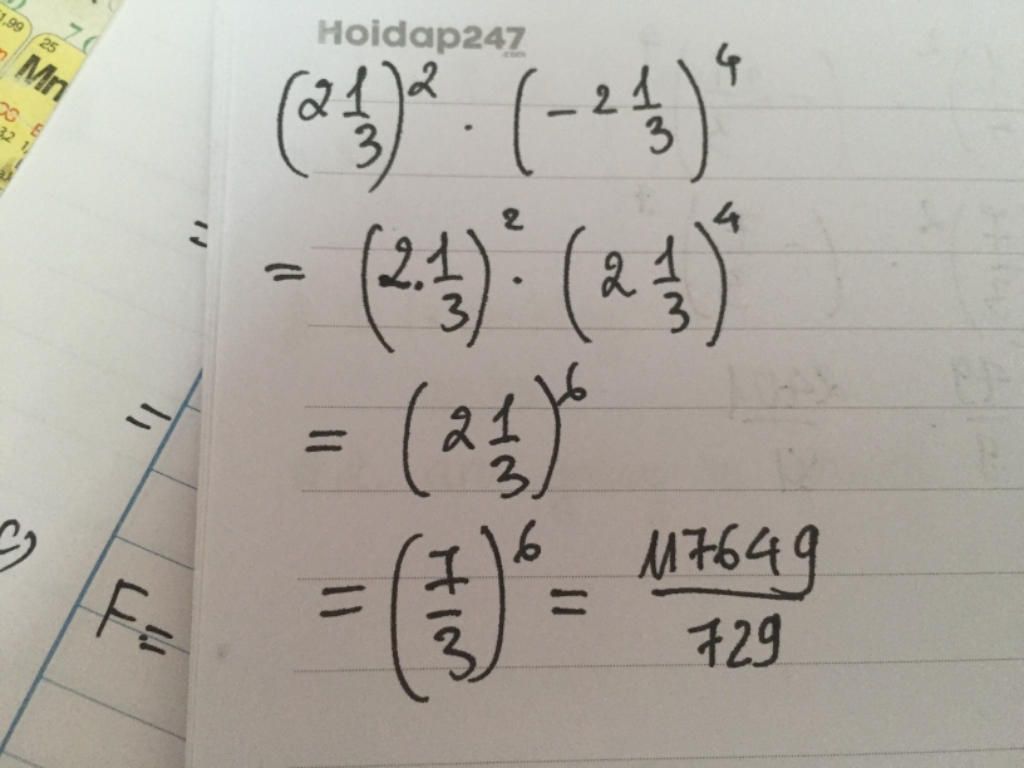 Hoidap247
.com
(2 1/3)² . (-2 1/3)⁴
= (2. 1/3)² . (2 1/3)⁴
= (2 1/3)⁶
= (7/3)⁶ = 117649/729
25
Mn
F=